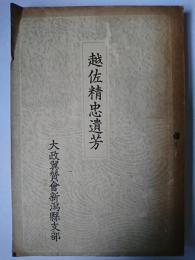 越佐精忠遺芳
大政翼賛會新潟縣支部